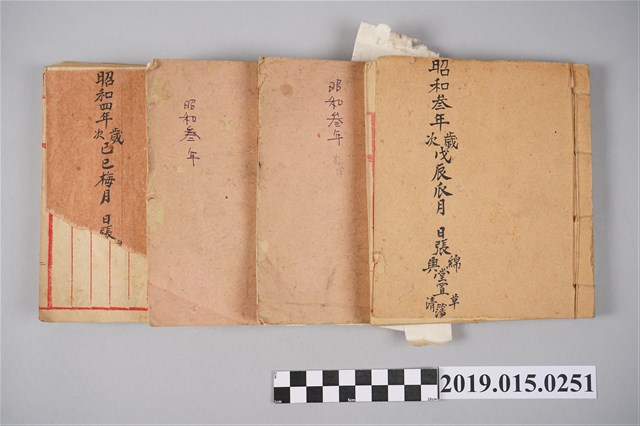 昭和四年歲次己巳梅月 日張
昭和叁年
昭和叁年
昭和叁年歲次戊辰瓜月 日張
綿興堂置
草清
2019.015.0251